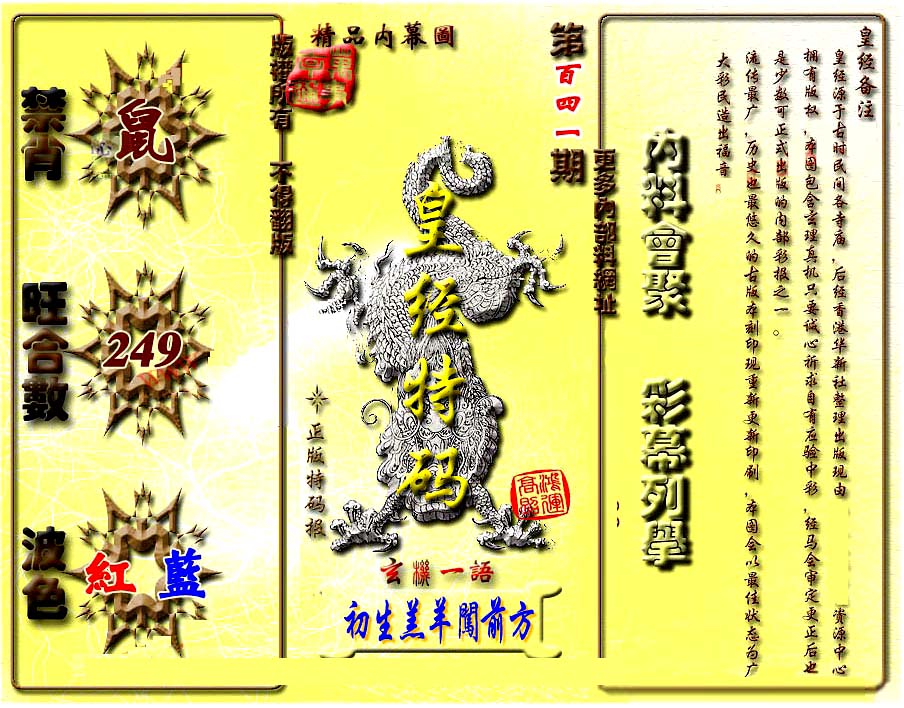 禁肖
鼠
旺合數
249
波色
紅 藍
版權所有 不得翻版
精品内幕圖
皇经特码
正版特码报
鴻運高照
玄機一語
初生羔羊闖前方
第百四一期
更多內部料網址
内料會聚 彩幕列舉
皇经备注
皇经源于古时民间各寺庙,后经香港华新社整理出版现由 资源中心
拥有版权,本图包含玄理真机只要诚心祈求自有应验中彩,经马会审定更正后也
是少数可正式出版的内部彩报之一。
流传最广,历史也最悠久的古版本刻印现重新更新印刷,本图会以最佳状态为广
大彩民造出福音